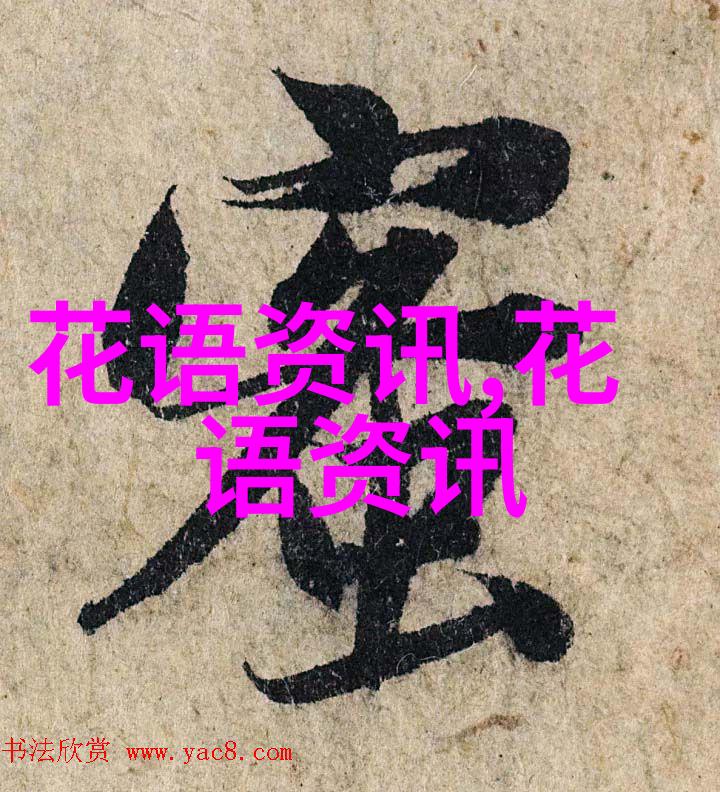 花语资讯,花
语资讯
书法欣赏 www.yac8.com